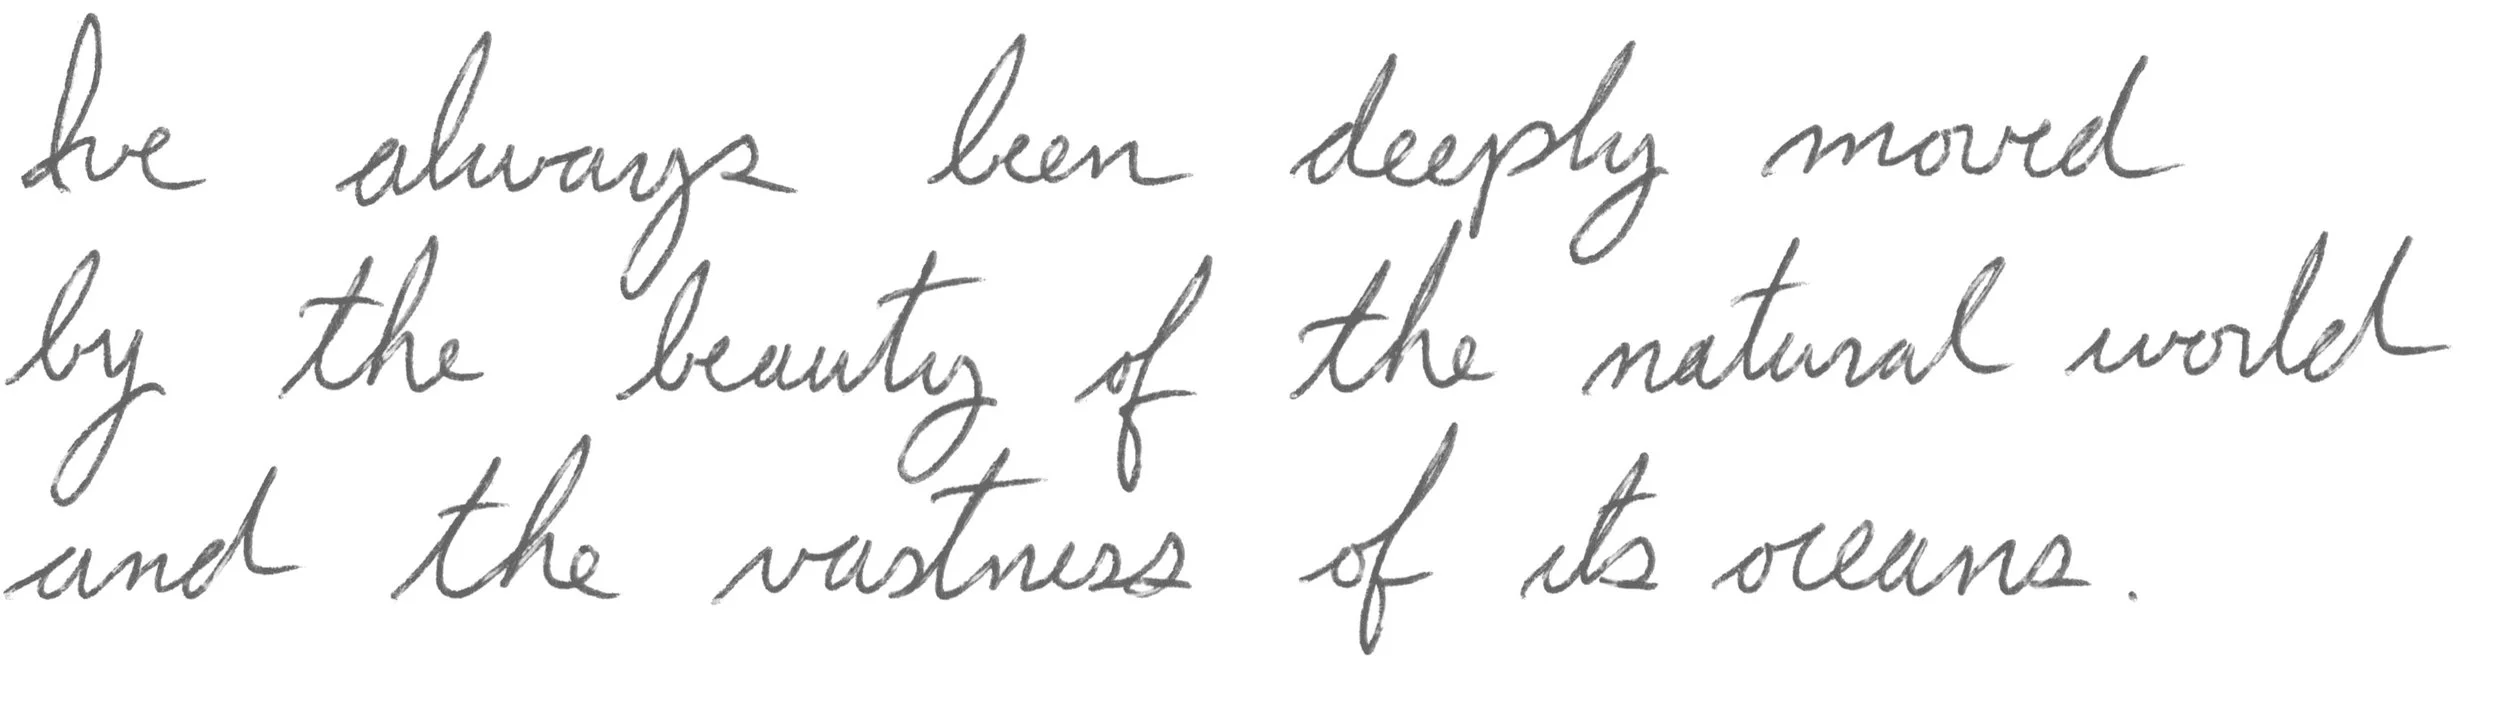 Ive always been deeply moved
by the beauty of the natural world
and the vastness of its oceans.